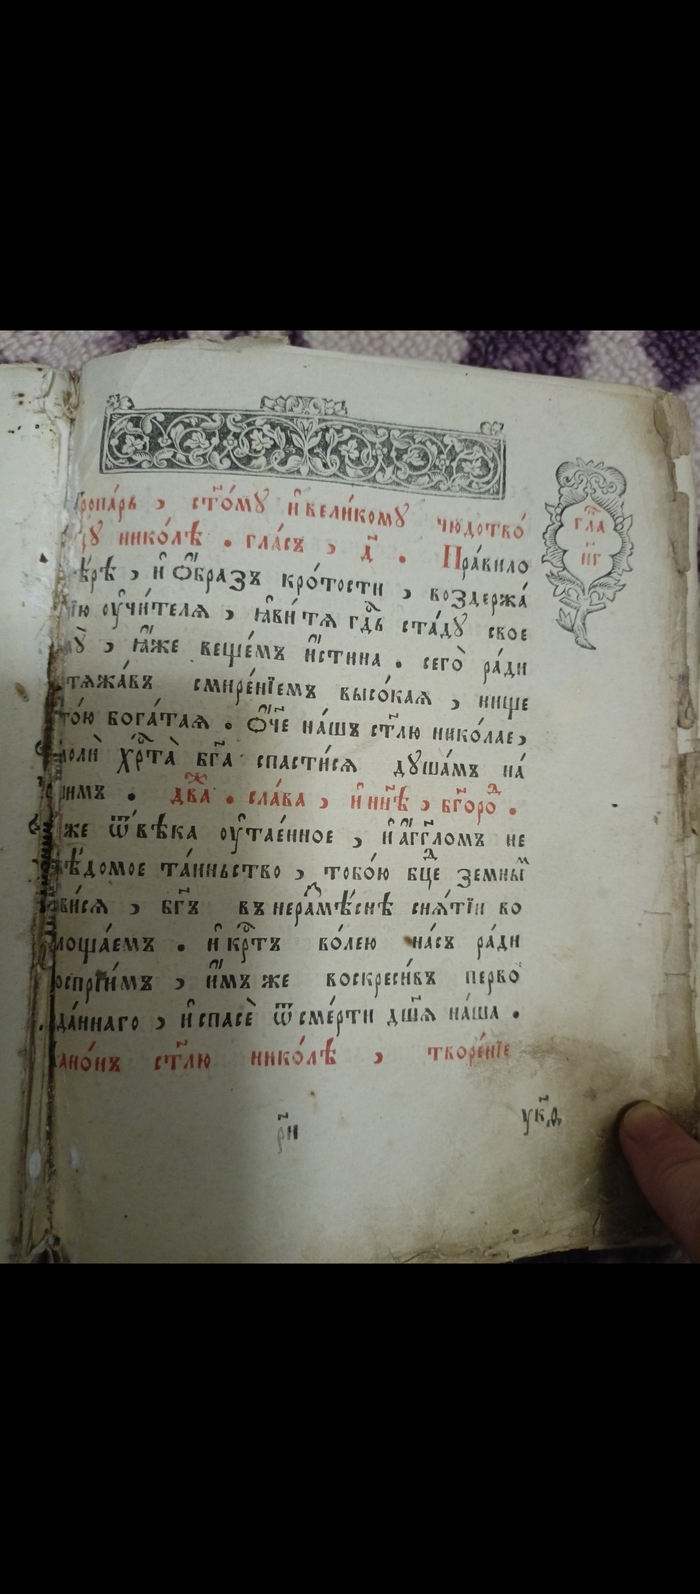 тропа́рь , ст҃о́мꙋ и҆ вели́комꙋ чюдотво́
нико́лѣ . гла́съ , д҃ . Пра́вило
гла҃ н҃г
вѣ́рѣ , и҆ ѻ҆́бразъ кро́тости , воздержа́
нїю ᲂу҆чи́телѧ , ꙗ҆ви́ тѧ гдⷭ҇ь ста́дꙋ свое
мꙋ̀ , ꙗ҆́же веще́мъ и҆́стина . сего̀ ра́ди
стѧжа́въ смире́нїемъ высо́каѧ , нище
то́ю бога́таѧ . Ѻ҆́ч҃е на́шъ ст҃лю нико́лае ,
молѝ хрⷭ҇та̀ бг҃а спасти́сѧ дꙋша́мъ на́
шимъ . двⷤа . сла́ва , и҆ нн҃ѣ , бг҃оро́ⷣ .
же ѿ вѣ́ка ᲂу҆тае́нное , и҆ а҆́гг҃ломъ не
вѣ́домое та́иньство , тобо́ю бцⷣе земны́м
ꙗ҆ви́сѧ , бг҃ъ въ нера́змѣснѣ снѧ́тїи во
площа́емъ . и҆ крⷭ҇тъ во́лею на́съ ра́ди
воспрїи́мъ , и҆́мъ же воскреси́въ перво
зда́ннаго , и҆ спасѐ ѿ сме́рти дш҃ѧ на́ша .
кано́нъ ст҃лю нико́лѣ , творе́нїе
р҃и